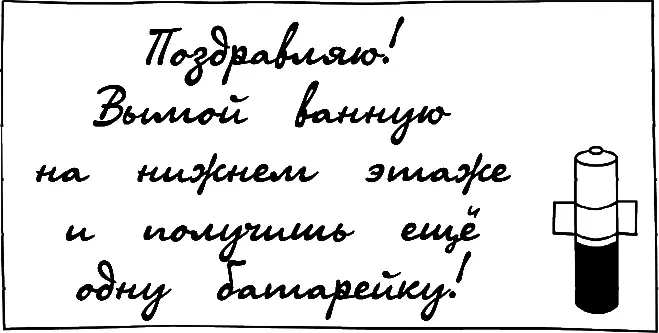 Поздравляю!
Вымой ванную
на нижнем этаже
и получишь ещё
одну батарейку!